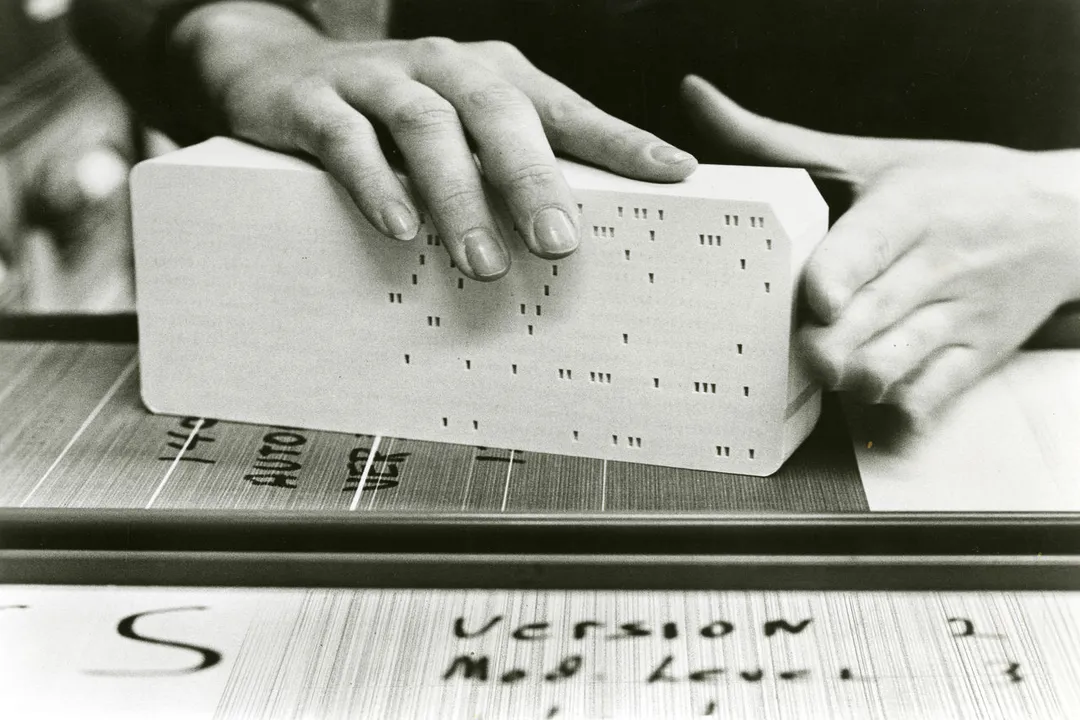 140
AUTO
VER
S
Version 2
Mod Level 3